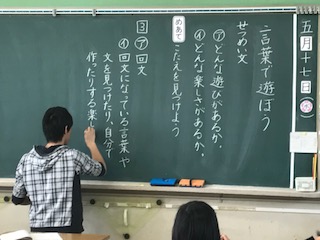 五月十七日㊎
言葉で遊ぼう
せつめい文
㋐どんな遊びがあるか。
㋑どんな楽しさがあるか。
めあて
こたえを見つけよう
3 ㋐回文
㋑回文になっている言葉や
文を見つけたり、自分で
作ったりする楽し